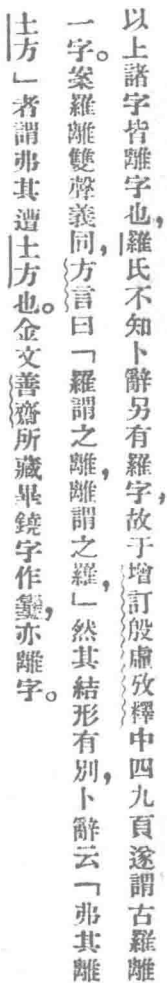 以上諸字皆離字也,羅氏不知卜辭另有羅字,故于增訂殷虛攷釋中四九頁遂謂古羅離
一字。案羅離雙聲義同,方言曰「羅謂之離,離謂之羅,」然其結形有別,卜辭云「弗其離
土方」者謂弗其遭土方也。金文善齋所藏畢鐃字作,亦離字。